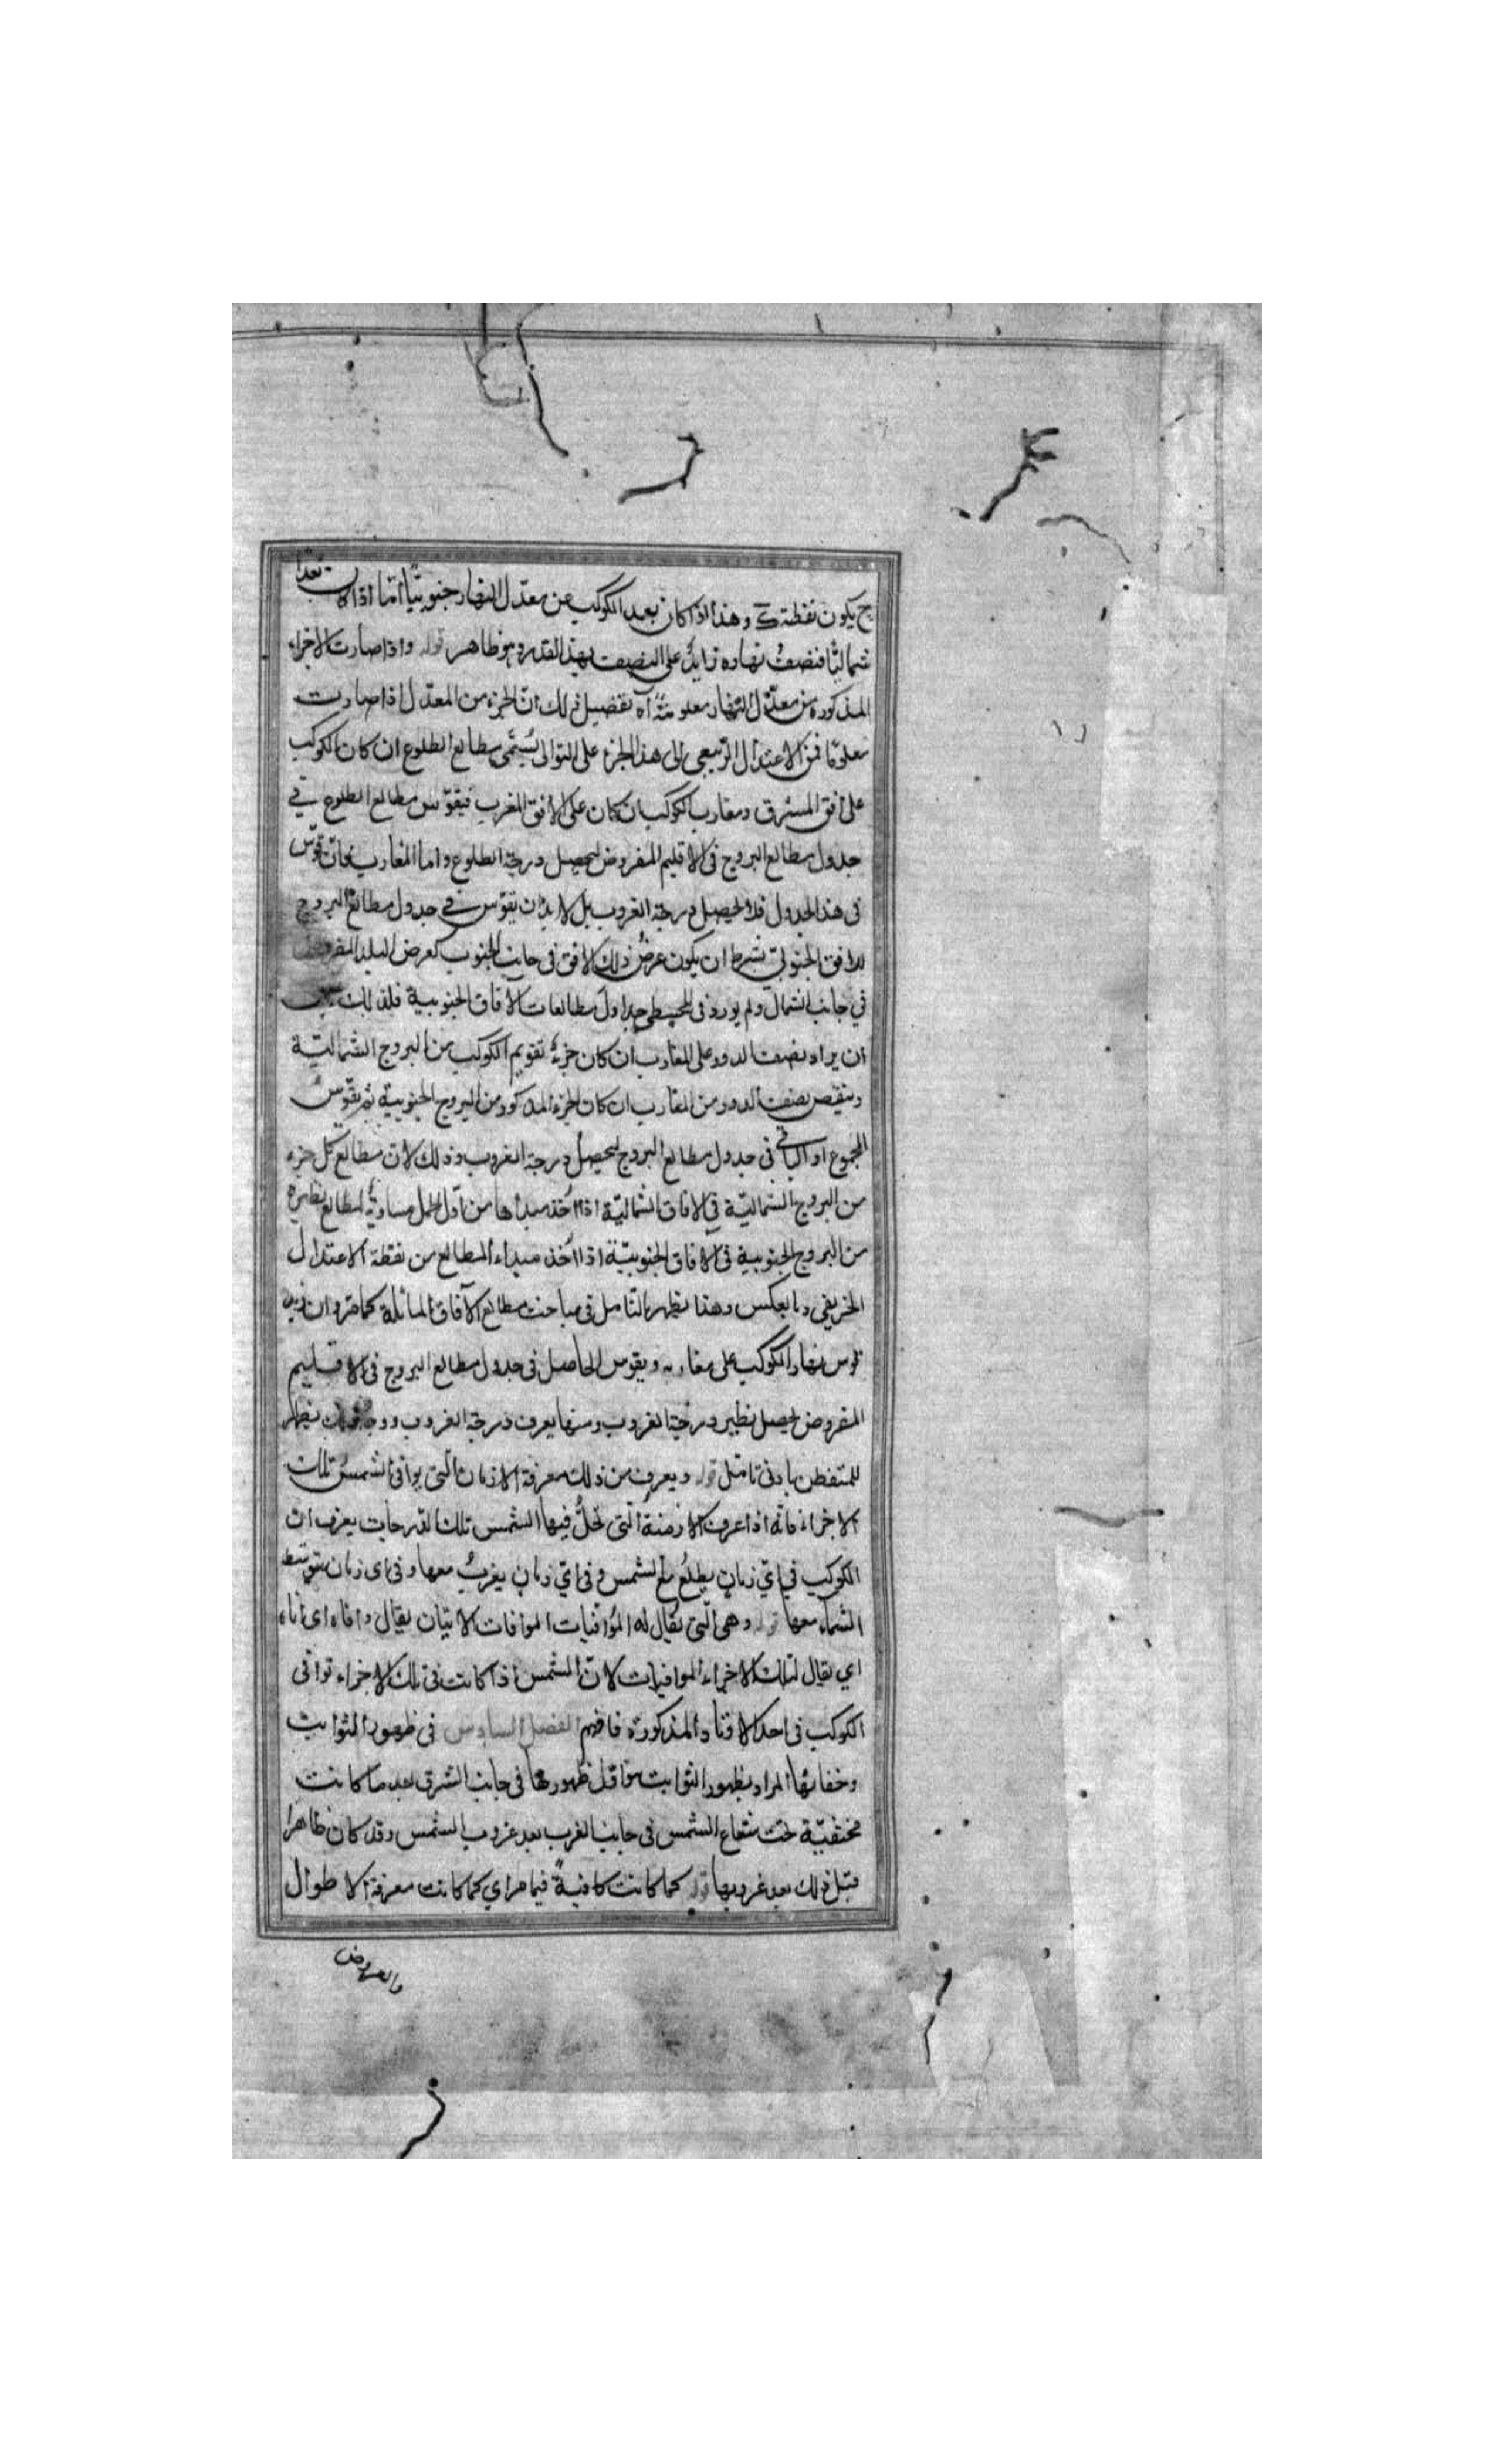 ح يكون نقطة ك وهذا اذا كان بعد الكوكب عن معدل النهار جنوبيّا امّا اذا كان بعدا
شماليّا فنصفُ نهاره زايدٌ على النصف بهذ القدر وهو ظاهر قوله واذا صارت الاجزاء
المذكورة من معدّل النّهار معلومةً اه تفضيل ذلك انّ الجزء من المعدّل اذا صارت
معلومًا فمن الاعتدال الرّبيعى الى هذا الجزء على التوالى يُسمّى مطالع الطلوع ان كان الكوكب
على افق المشرق ومغارب الكوكب ان كان على الافق المغرب فيقوّس مطالع الطلوع في
جدول مطالع البروج فى الاقليم المفروض ليحصل درجة الطلوع واما المغارب فان قوّس
فى هذا الجدول فلا يحصل درجة الغروب بل لا بد ان يقوّس في جدول مطالع البروج
للافق الجنوبىّ بشرط ان يكون عرضُ ذلك الافق فى جانب الجنوب كعرض البلد المفروض
في جانب الشمال ولم يورد فى المجسطى جداول مطالعات الآفاق الجنوبية فلذلك يجب
ان يزاد نصف الدور على المغارب ان كان جزءُ تقويم الكوكب من البروج الشماليّة
وينقص نصف الدور من المغارب ان كان الجزء المذكور من البروج الجنوبية ثم يقوّسُ
المجموع او الباقي فى جدول مطالع البروج ليحصلُ درجة الغروب وذلك لان مطالع كل جزء
من البروج الشماليّة في الافاق الشماليّة اذا اُخذ مبداها من اوّل الحمل مساويةٌ لمطالع نظيره
من البروج الجنوبية فى الافاق الجنوبيّة اذا اُخذ مبداء المطالع من نقطة الاعتدال
الخريفي وبالعكس وهذا يظهر بالتامل فى مباحث مطالع الآفاق المائلة كما مرّ وان زيد
قوس نهار الكوكب على مغاربه ويقوس الحاصل فى جدول مطالع البروج فى الاقليم
المفروض يحصل نظير درجة الغروب ومنها يعرف درجة الغروب ووجه ذلك يظهر
للمتفطن بادنى تامّل قوله ويعرف من ذلك معرفة الازمان الّتى يوافى الشمسُ تلك
الاجزاء فانّه اذا عرف الازمنةُ الّتى تحلُّ فيها الشمس تلك الدّرجات يعرف ان
الكوكب في ايّ زمانٍ يطلعُ مع الشمس وفى ايّ زمان يغربُ معها وفى اى زمان يتوسّط
السّماء معها قوله وهى الّتى يُقال له الموُافيات الموافات الاتيان يقال وافاه اى اتاه
اي يقال لتلك الاجزاء الموافيات لانّ الشمس اذا كانت فى تلك الاجزاء توافى
الكوكب فى احد الاوتاد المذكورة فافهم الفصل السادس فى ظهور الثوابت
وخفائها المراد بظهور الثوابت هو اوّل ظهورها فى جانب الشرق بعد ما كانت
مختفيّة تحت شعاع الشمس فى جانب الغرب بعد غروب الشمس وقد كان ظاهرا
قبل ذلك بعد غروبها قوله كما كانت كافيةً فيما مر اي كما كانت معرفة الاطوال
والعروض